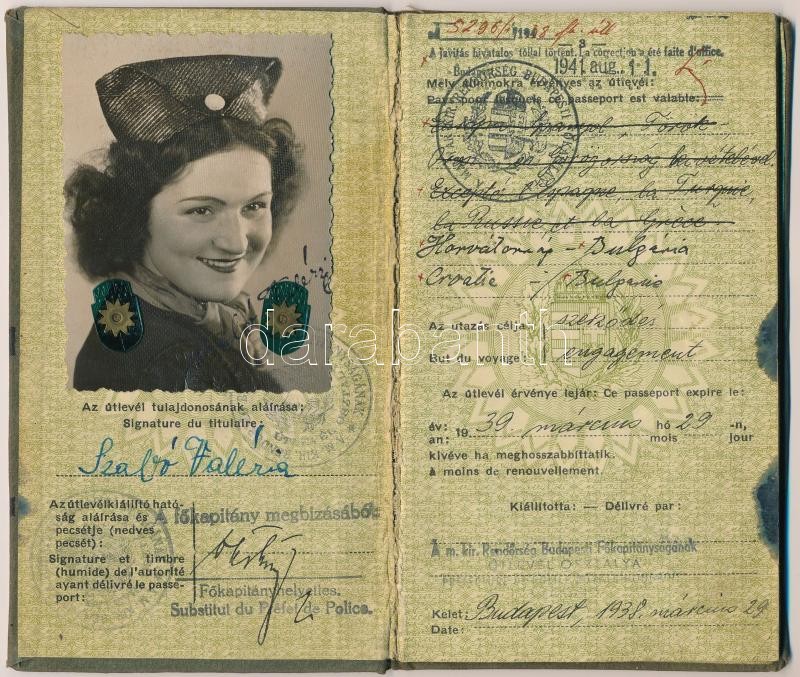 Az útlevél tulajdonosának aláírása:
Signature du titulaire:
Szabó Valéria
Az útlevélkiállító ható-
ság aláírása és
pecsétje (nedves
pecsét):
Signature et timbre
(humide) de l'autorité
ayant délivré le passe-
port:
A főkapitány megbízásából:
Főkapitányhelyettes.
Substitut du Préfet de Police.
— 3 —
A javítás hivatalos tollal történt. La correction a été faite d'office.
Budapest, 1941 aug. 11.
Mely államokra érvényes az útlevél:
Pays pour lesquels ce passeport est valable:
Török
Excepté l'Espagne, la Turquie,
la Russie et la Grèce
Horvátország – Bulgária
Croatie – Bulgarie
Az utazás célja: szerződés
But du voyage: engagement
Az útlevél érvénye lejár: Ce passeport expire le:
év: 1939 március hó 29 -n,
an: mois jour
kivéve ha meghosszabbíttatik.
à moins de renouvellement.
Kiállította: — Délivré par:
A m. kir. Rendőrség Budapesti Főkapitányságának
ÚTLEVÉLOSZTÁLYA
Kelet: Budapest, 1938. március 29
Date:
darabanth